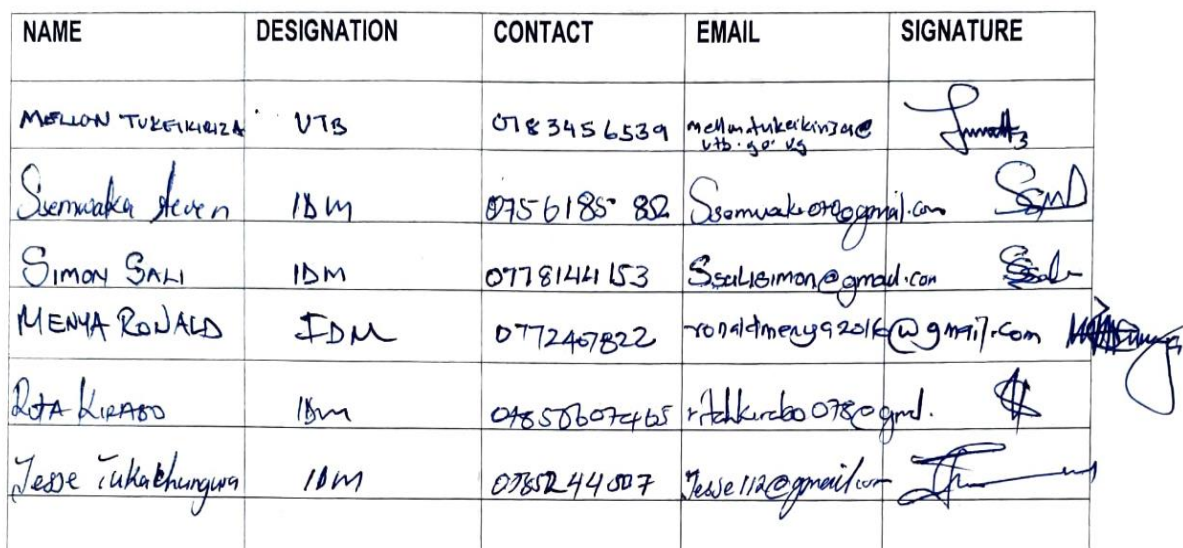 NAME DESIGNATION CONTACT EMAIL SIGNATURE
MELLON TUKEIKIRIZA UTB 0783456539 mellontukeikiriza@
utb.go.ug
Ssemwaka Steven IDM 0756185 852 @gmail.com
SIMON SALI IDM 0778144153 Ssalisimon@gmail.com
MENYA RONALD IDM 0772467822 ronaldmenya2016@gmail.com
RITA KIRABO IDM
Jesse Tukachungwa IDM Jesse112@gmail.com